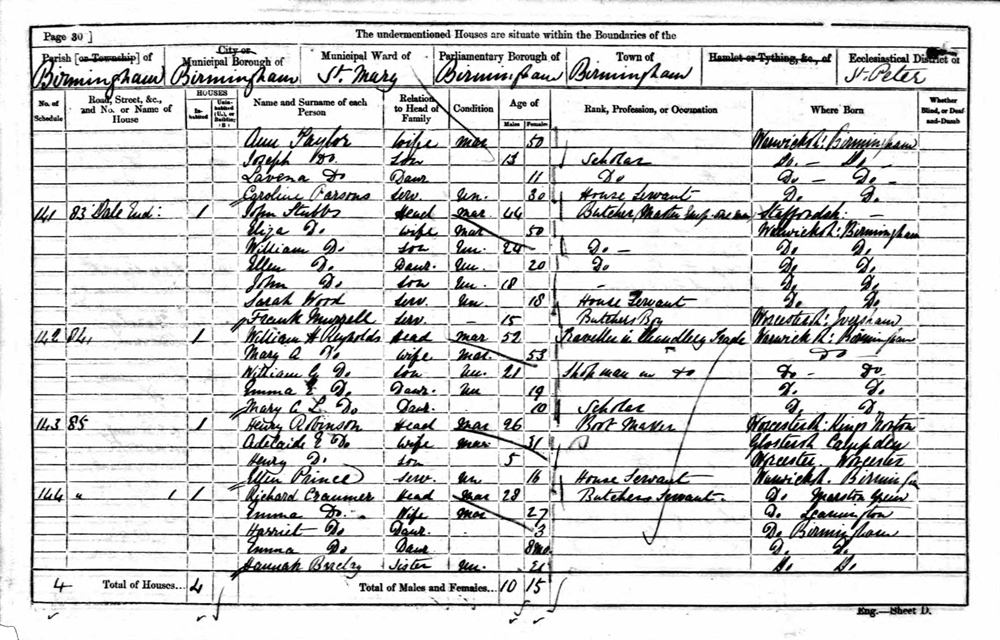 Page 30 ] The undermentioned Houses are situate within the Boundaries of the
Parish [or Township] of City or Municipal Borough of Municipal Ward of Parliamentary Borough of Town of Hamlet or Tything, &c., of Ecclesiastical District of
Birmingham Birmingham St. Mary Birmingham Birmingham St. Peter
No. of Schedule Road, Street, &c., and No. or Name of House HOUSES Inhabited Uninhabited (U.), or Building (B.) Name and Surname of each Person Relation to Head of Family Condition Age of Males Females Rank, Profession, or Occupation Where Born Whether Blind, or Deaf-and-Dumb
Ann Taylor Wife Mar 50 Warwicksh: Birmingham
Joseph Do. Son 13 Scholar Do. - Do. -
Lavena Do Daur 11 Do Do - Do -
Caroline Parsons Serv. Un. 30 House Servant D. D.
141 83 Dale End: 1 John Stubbs Head Mar. 44 Butcher Master Staffordsh: -
Eliza D. Wife Mar 50 Warwicksh: Birmingham
William D. Son Un. 24 Do - D. D.
Ellen D. Daur. Un. 20 Do D. D.
John D. Son Un. 18 - D. D.
Sarah Wood Serv. Un. 18 House Servant D. D.
Frank Murrell Serv. - 15 Butchers Boy Worcestersh:
142 84, 1 William H Reynolds Head Mar 52 Traveller in Chandlery Trade Warwicksh: Birmingham
Mary A Do Wife Mar. 53 Do -
William G D. Son Un. 21 Shopman in do Do - Do.
Emma D. Daur. Un 19 D. D.
Mary C L. Do Daur. 10 Scholar D. D.
143 85 1 Henry Robinson Head Mar 26 Boot Maker Worcestersh: Kings Norton
Adelaide E Do Wife Mar 31 Glostersh Campden
Henry D. Son 5 Worcester Worcester
Ellen Prince Serv. Un. 16 House Servant Warwicksh. Birmingham
144 " 1 1 Richard Craumer Head Mar 28 Butchers Servant D. Marston Green
Emma Do. - Wife Mar 27 D. Leamington
Harriet Do Daur. 3 D. Birmingham
Emma Do Daur 8mo. D. D.
Hannah Sister Un. 21 Do Do
4 Total of Houses... 4 Total of Males and Females... 10 15
Eng.—Sheet D.